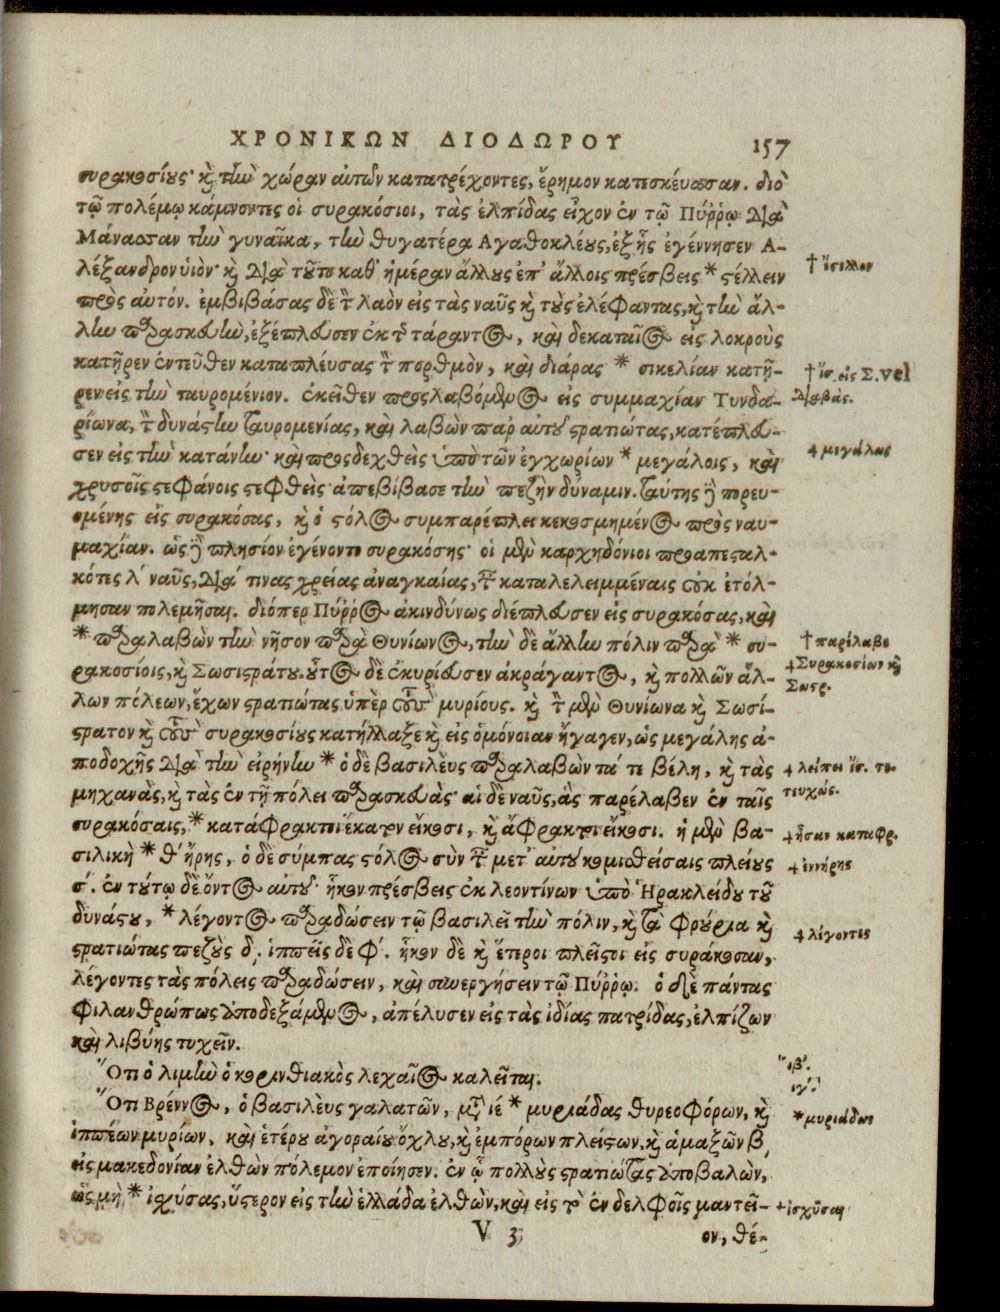 ΧΡΟΝΙΚΩΝ ΔΙΟΔΩΡΟΥ 157
συρακοσίους· καὶ τὴν χώραν αὐτῶν κατατρέχοντες, ἔρημον κατεσκεύασαν. διὸ
τῷ πολέμῳ κάμνοντες οἱ συρακόσιοι, τὰς ἐλπίδας εἶχον ἐν τῷ Πύῤῥῳ διὰ
Μάνασσαν τὴν γυναῖκα, τὴν θυγατέρα Αγαθοκλέους, ἐξ ἧς ἐγέννησεν Α-
λέξανδρον υἱόν· καὶ διὰ τοῦτο καθ' ἡμέραν ἄλλους ἐπ' ἄλλοις πρέσβεις * στέλλειν
† ἔστελλον
πρὸς αὐτόν. ἐμβιβάσας δὲ τὸν λαὸν εἰς τὰς ναῦς καὶ τοὺς ἐλέφαντας, καὶ τὴν ἄλ-
λην παρασκευὴν, ἐξέπλευσεν ἐκ τοῦ τάραντος, καὶ δεκαταῖος εἰς λοκροὺς
κατῆρεν ἐντεῦθεν καταπλεύσας τὸν πορθμὸν, καὶ διάρας * σικελίαν κατῆ-
† ἴσ. εἰς Σ. vel
ρεν εἰς τὴν ταυρομένιον. ἐκεῖθεν προσλαβόμενος εἰς συμμαχίαν Τυνδα-
διαβάς.
ρίωνα, τὸν δυνάστην ταυρομενίας, καὶ λαβὼν παρ αὐτοῦ στρατιώτας, κατέπλευ-
σεν εἰς τὴν κατάνην· καὶ προσδεχθεὶς ὑπὸ τῶν ἐγχωρίων * μεγάλοις, καὶ
+ μεγάλως
χρυσοῖς στεφάνοις στεφθεὶς ἀπεβίβασε τὴν πεζὴν δύναμιν. ταύτης δὲ πορευ-
ομένης εἰς συρακόσας, καὶ ὁ στόλος συμπαρέπλει κεκοσμημένος πρὸς ναυ-
μαχίαν. ὡς δὲ πλησίον ἐγένοντο συρακόσης· οἱ μὲν καρχηδόνιοι προαπεσταλ-
κότες λ' ναῦς, διά τινας χρείας ἀναγκαίας, ταῖς καταλελειμμέναις οὐκ ἐτόλ-
μησαν πολεμῆσαι. διόπερ Πύῤῥος ἀκινδύνως διέπλευσεν εἰς συρακόσας, καὶ
* παραλαβὼν τὴν νῆσον παρὰ Θυνίωνος, τὴν δὲ ἄλλην πόλιν παρὰ * συ-
† παρέλαβε
ρακοσίοις, καὶ Σωσιστράτου. οὗτος δὲ ἐκυρίευσεν ἀκράγαντος, καὶ πολλῶν ἄλ-
+ Συρακοσίων καὶ
Σωστρ.
λων πόλεων, ἔχων στρατιώτας ὑπὲρ τοὺς μυρίους. καὶ τὸν μὲν Θυνίωνα καὶ Σωσί-
στρατον καὶ τοὺς συρακοσίους κατήλλαξε καὶ εἰς ὁμόνοιαν ἤγαγεν, ὡς μεγάλης ἀ-
ποδοχῆς διὰ τὴν εἰρήνην * ὁ δὲ βασιλεὺς παραλαβὼν τά τε βέλη, καὶ τὰς
+ λείπει ἴσ. τε-
τευχώς.
μηχανὰς, καὶ τὰς ἐν τῇ πόλει παρασκευάς· αἱ δὲ ναῦς, ἃς παρέλαβεν ἐν ταῖς
συρακόσαις, * κατάφρακτοι ἑκατὸν εἴκοσι, καὶ ἄφρακτοι εἴκοσι. ἡ μὲν βα-
+ ἦσαν καταφρ.
σιλικὴ * θ' ἤρης, ὁ δὲ σύμπας στόλος σὺν ταῖς μετ' αὐτοῦ κομισθείσαις πλείους
+ ἐννήρης
σ'. ἐν τούτῳ δὲ ὄντος αὐτοῦ· ἧκον πρέσβεις ἐκ λεοντίνων ὑπὸ Ἡρακλείδου τοῦ
δυνάστου, * λέγοντος παραδώσειν τῷ βασιλεῖ τὴν πόλιν, καὶ τὰ φρούρια καὶ
+ λέγοντες
στρατιώτας πεζοὺς δ, ἱππεῖς δὲ φ'. ἧκον δὲ καὶ ἕτεροι πλεῖστοι εἰς συράκοσαν,
λέγοντες τὰς πόλεις παραδώσειν, καὶ συνεργήσειν τῷ Πύῤῥῳ. ὁ δὲ πάντας
φιλανθρώπως ὑποδεξάμενος, ἀπέλυσεν εἰς τὰς ἰδίας πατρίδας, ἐλπίζων
καὶ λιβύης τυχεῖν.
Ὅτι ὁ λιμὴν ὁ κορινθιακὸς λεχαῖος καλεῖται.
ιβ'.
Ὅτι Βρέννος, ὁ βασιλεὺς γαλατῶν, μετὰ ιέ * μυριάδας θυρεοφόρων, καὶ
ιγ'.
* μυριάδων
ἱππέων μυρίων, καὶ ἑτέρου ἀγοραίου ὄχλου, καὶ ἐμπόρων πλείστων, καὶ ἁμαξῶν β,
εἰς μακεδονίαν ἐλθὼν πόλεμον ἐποίησεν. ἐν ᾧ πολλοὺς στρατιώτας ἀποβαλὼν,
ὡς μὴ * ἰσχύσας, ὕστερον εἰς τὴν ἑλλάδα ἐλθὼν, καὶ εἰς τὸ ἐν δελφοῖς μαντεῖ-
+ ἰσχῦσαι
V 3 ον, θέ-